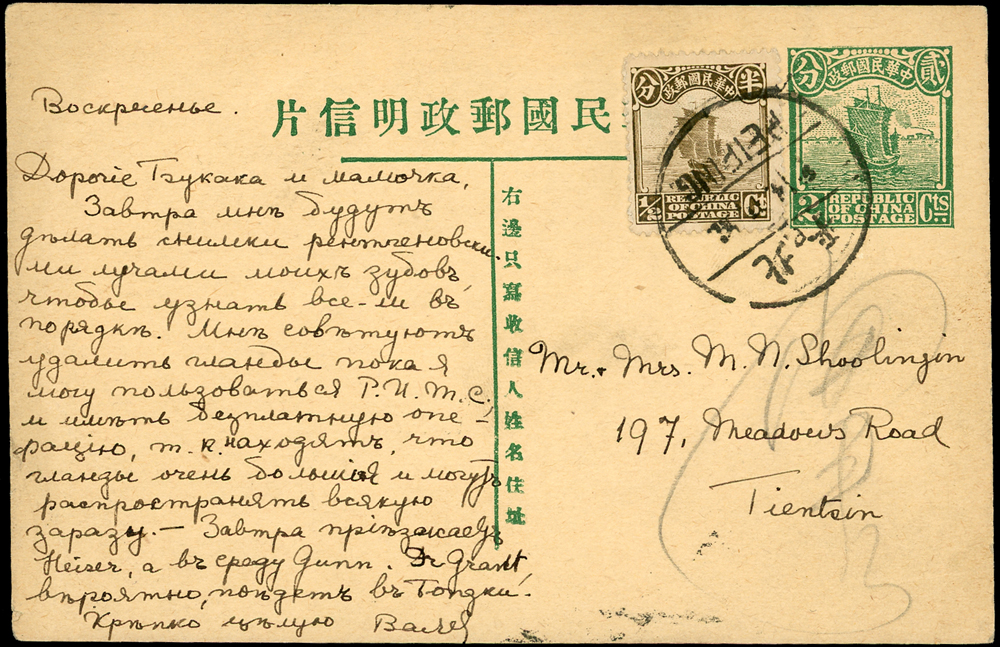 Воскресенье.
民國郵政明信片
Дорогіе Бзукака и мамочка,
Завтра мнѣ будутъ
дѣлать снимки рентгеновски-
ми лучами моихъ зубовъ,
чтобы узнать все-ли въ
порядкѣ. Мнѣ совѣтуютъ
удалить гланды пока я
могу пользоваться P.U.M.C.
и имѣть безплатную опе-
рацію, т.к. находятъ, что
гланды очень большія и могутъ
распространять всякую
заразу. — Завтра пріѣзжаетъ
Heiser, а въ среду Gunn. Dr Grant,
вѣроятно, поѣдетъ въ
Крѣпко цѣлую
右邊只寫收信人姓名住址
分 中華民國郵政 半
1/2 REPUBLIC OF CHINA POSTAGE Ct
分 中華民國郵政 貳
2 REPUBLIC OF CHINA POSTAGE Cts
PEIPING
北
Mr. & Mrs. M. N. Shoolingin
197, Meadows Road
Tientsin